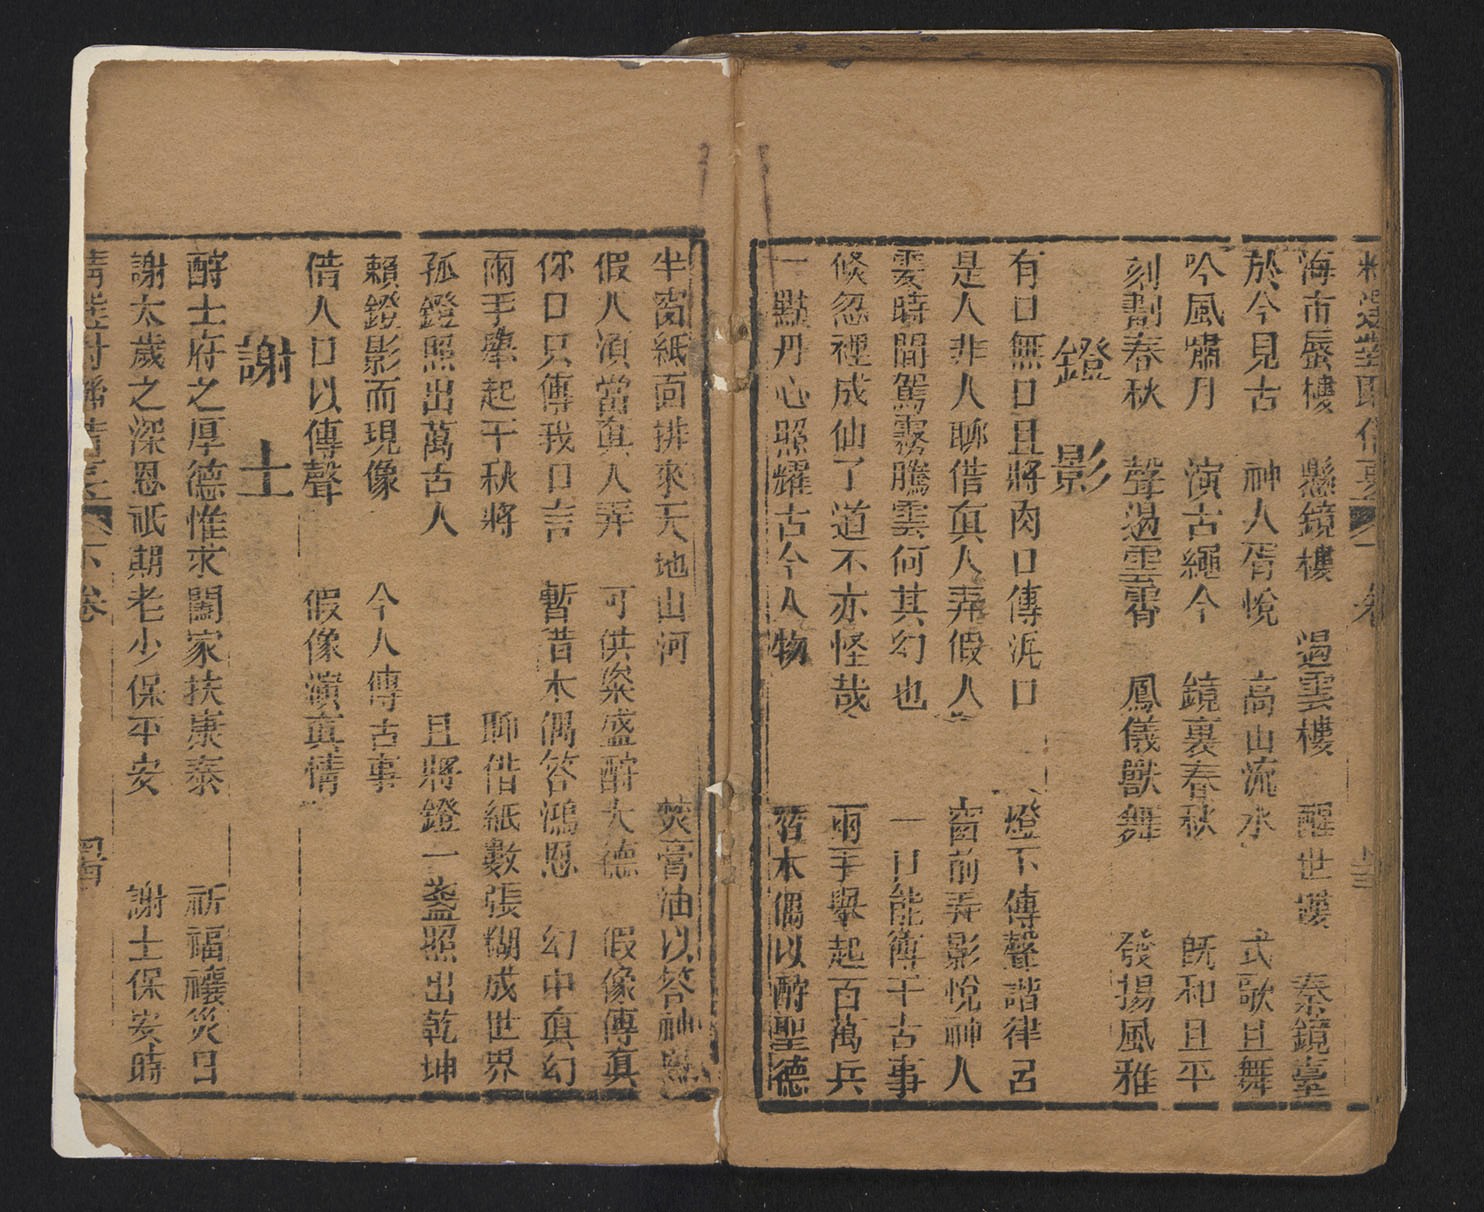 海市蜃樓　懸鏡樓　遏雲樓　醒世樓　秦鏡臺
於今見古　神人胥悅　高山流水　式歌且舞
吟風嘯月　演古繩今　鏡裏春秋　旣和且平
刻劃春秋　聲遏雲霄　鳳儀獸舞　發揚風雅
鐙影
有口無口且將肉口傳泥口　燈下傳聲諧律呂
是人非人聊借眞人弄假人　窗前弄影悅神人
霎時間駕霧騰雲何其幻也　一口能傳千古事
倏忽裡成仙了道不亦怪哉　兩手舉起百萬兵
一點丹心照耀古今人物　借木偶以酧聖德
半窗紙面排來天地山河　焚膏油以答神恩
假人須當眞人弄　可供粢盛酧大德　假像傳眞
你口只傳我口言　暫借木偶答鴻恩　幻中眞幻
兩手舉起千秋將　聊借紙數張糊成世界
孤鐙照出萬古人　且將鐙一盞照出乾坤
賴鐙影而現像　今人傳古事
借人口以傳聲　假像演眞情
謝土
酧土府之厚德惟求闔家扶康泰　祈福禳災日
謝太歲之深恩祇期老少保平安　謝土保安時
下卷